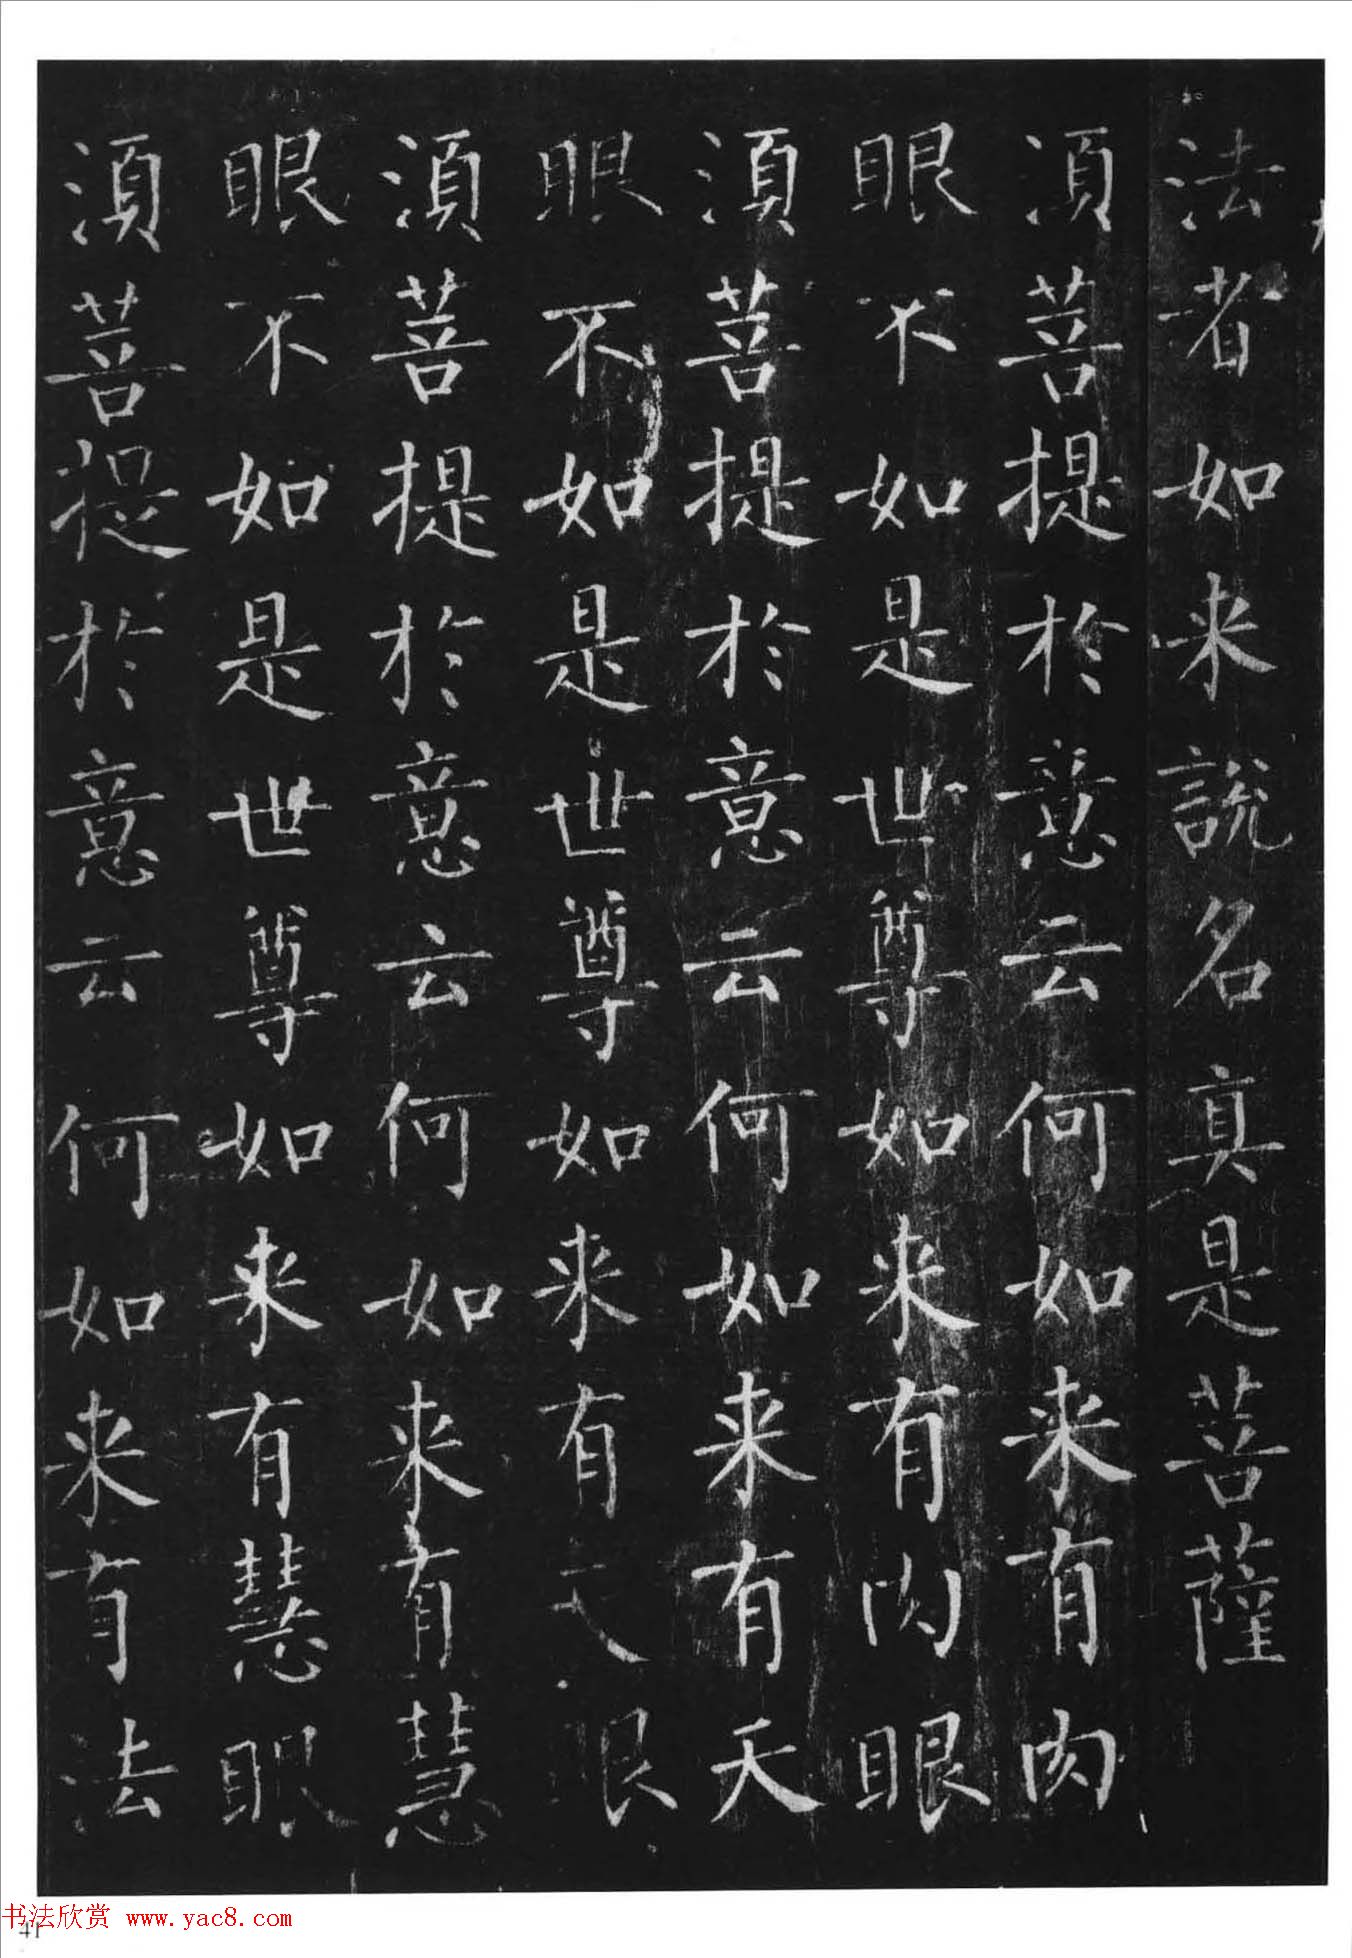 法者如来說名真是菩薩
湏菩提於意云何如来有肉
眼不如是世尊如来有肉眼
湏菩提於意云何如来有天
眼不如是世尊如来有天眼
湏菩提於意云何如来有慧
眼不如是世尊如来有慧眼
湏菩提於意云何如来有法
书法欣赏 www.yac8.com
41